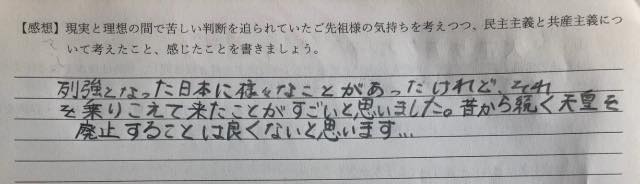 【感想】現実と理想の間で苦しい判断を迫られていたご先祖様の気持ちを考えつつ、民主主義と共産主義につ
いて考えたこと、感じたことを書きましょう。
列強となった日本に様々なことがあったけれど、それ
を乗りこえて来たことがすごいと思いました。昔から続く天皇を
廃止することは良くないと思います...